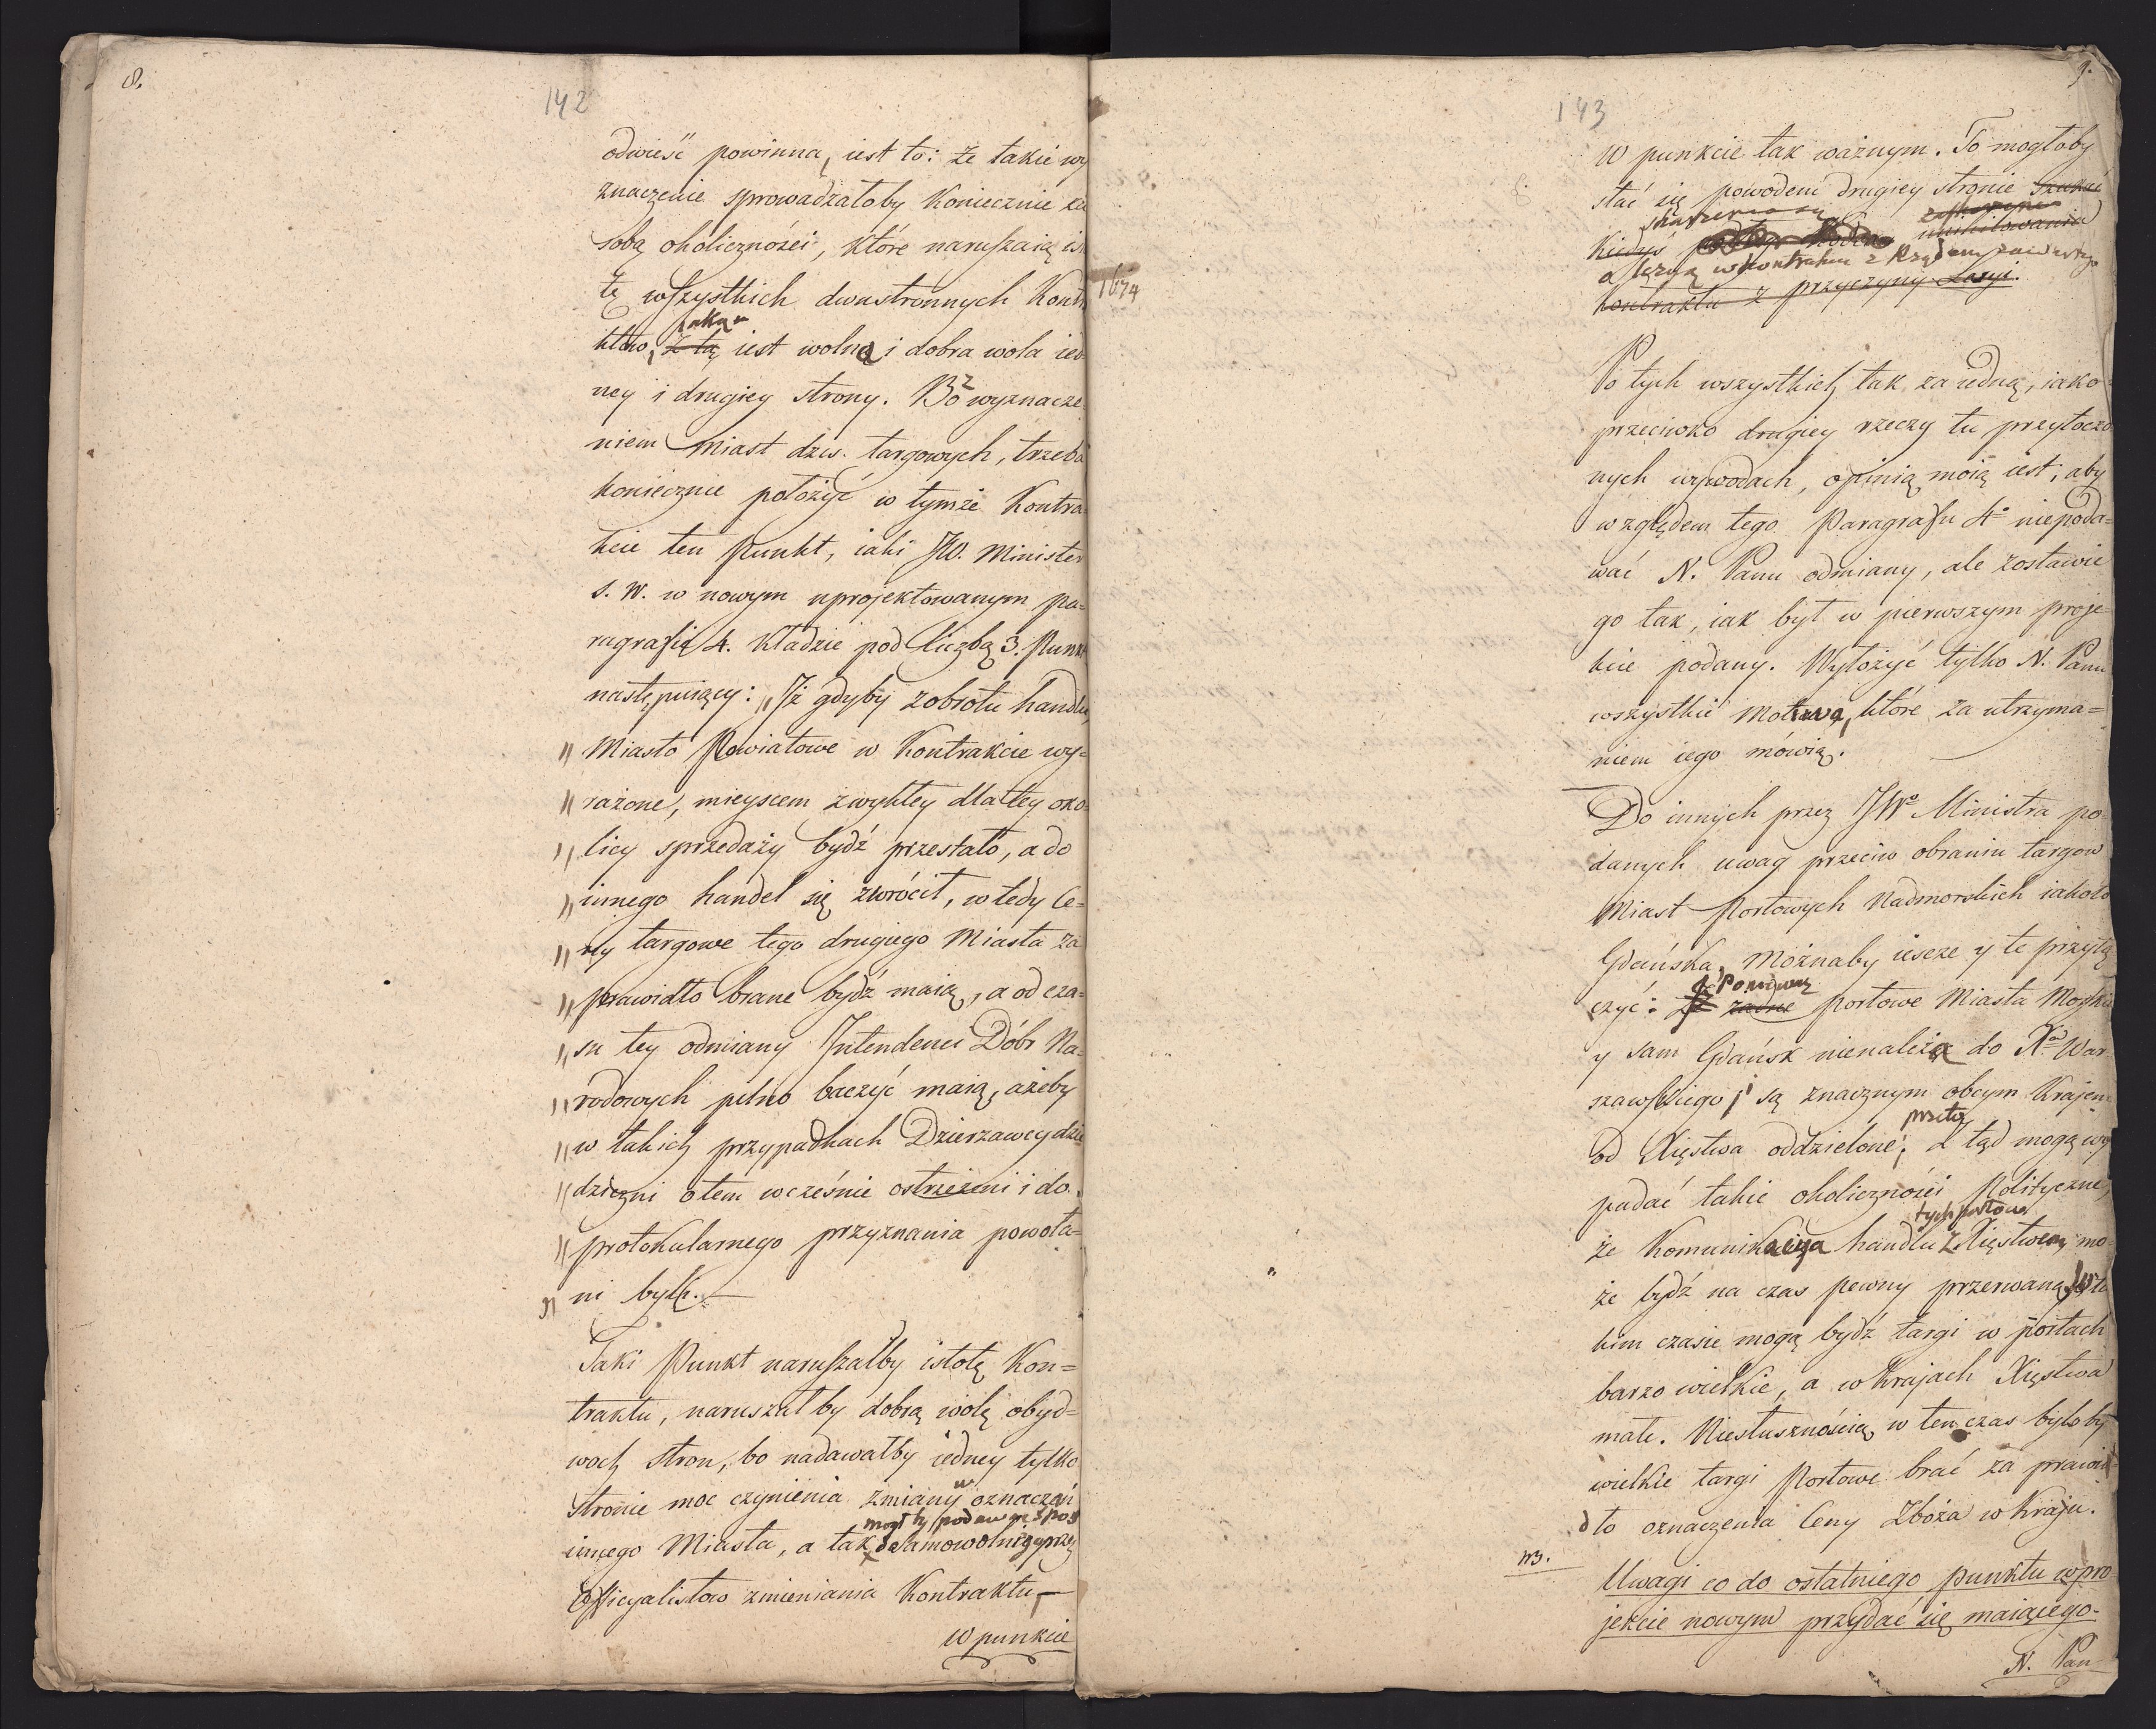 8.
142
odwieść powinna, iest to: że takie wy
znaczenie sprowadzałoby koniecznie za
sobą okoliczności, które naruszaią is
tę wszystkich dwustronnych Kontr
któw, z tą iaką iest wolna i dobra wola ied
ney i drugiey strony. Bo z wyznacze
niem Miast dzw. targowych, trzeba
koniecznie położyć w tymże Kontra
kcie ten Punkt, iaki JW. Minister
S. W. w nowym uprojektowanym pa=
ragrafie 4. kładzie pod liczbą 3. Punkt
następuiący: „Jż gdyby z obrotu handlu
„Miasto Powiatowe w Kontrakcie wy=
„rażone, mieyscem zwykłey dla tey oko
„licy sprzedaży bydź przestało, a do
„innego handel się zwrócił, wtedy Ce=
„ny targowe tego drugiego Miasta za
„prawidło brane bydź maią, a od cza=
„su tey odmiany Jntendenci Dóbr Na=
„rodowych pilno baczyć maią, ażeby
„w takich przypadkach Dzierzawcy dzie
„dziczni o tem wcześnie ostrzeżeni i do
„protokularnego przyznania powoła=
„ni byli.
Taki Punkt naruszałby istotę Kon=
traktu, naruszałby dobrą wolę obyd=
woch stron, bo nadawałby iedney tylko
stronie moc czynienia zmiany w oznaczeń
mogłby podawać spos
innego Miasta, a tak samowolnego przez
Officyalistów zmieniania Kontraktu,
w punkcie
143
9.
1674
w punkcie tak ważnym. To mogłoby
stać się powodem drugiey stronie szukać
skarżenia się
kiedyś
a lezyą w kontraktu z Rządem zawartego
kontraktu z przyczyny Lezyi.
Po tych wszystkich tak za iedną, iako
przeciwko drugiey rzeczy tu przytoczo
nych wywodach, opinią moią iest, aby
względem tego Paragrafu 4º niepoda=
wać N. Panu odmiany, ale zostawić
go tak, iak był w pierwszym proje=
kcie podany. Wyłożyć tylko N. Panu
wszystkie Motiwa, które za utrzyma=
niem iego mówią.
Do innych przez JWº Ministra po
danych uwag przeciw obraniu targow
Miast Portowych Nadmorskich iakoto
Gdańska, możnaby ieszcze y te przytą
czyć: że żadne Ponieważ portowe Miasta Morskie
y sam Gdańsk nienależą do Xa War
szawskiego i są znacznym obcym Krajem
od Xięstwa oddzielone; przeto z tąd mogą wy
padać takie okoliczności Polityczne,
tych portow
że Komunikacya handlu z Xięstwem mo
że bydź na czas pewny przerwaną. W ta
kim czasie mogą bydź targi w portach
barzo wielkie, a w krajach Xięstwa
małe. Niesłusznością w ten czas byłoby
wielkie targi Portowe brać za prawi
dło oznaczenia Ceny Zboża w kraju.
NB.
Uwagi co do ostatniego punktu w pro
jekcie nowym przydać się maiącego.
N. Pan